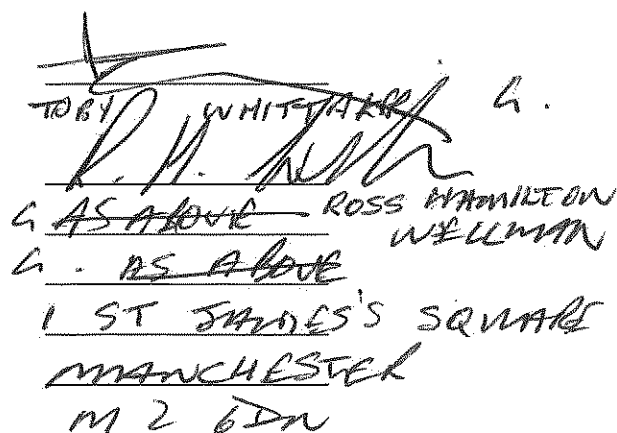 TOBY WHITTAKER G.
R. H. Will
G AS ABOVE ROSS HAMILTON
WELLMAN
G. AS ABOVE
1 ST JAMES'S SQUARE
MANCHESTER
M2 6DN